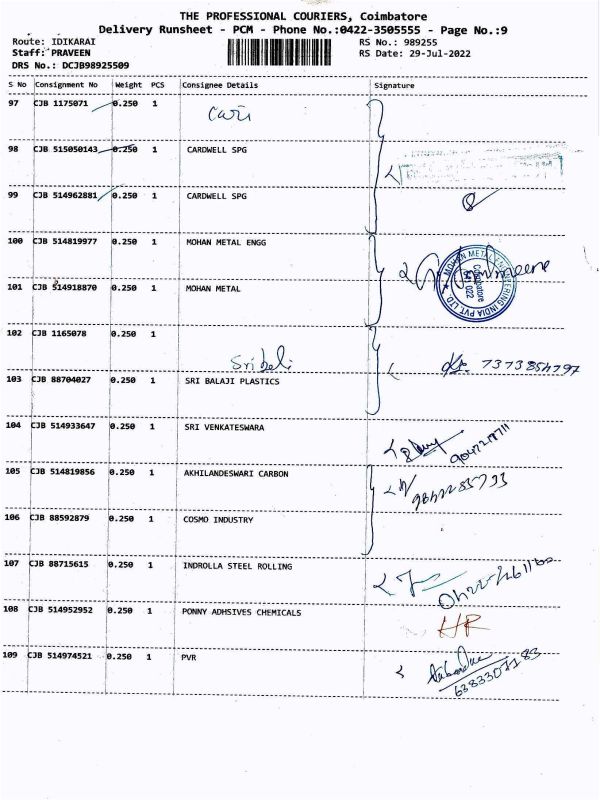 THE PROFESSIONAL COURIERS, Coimbatore
Delivery Runsheet - PCM - Phone No.:0422-3505555 - Page No.:9
Route: IDIKARAI RS No.: 989255
Staff: PRAVEEN RS Date: 29-Jul-2022
DRS No.: DCJB98925509
S No Consignment No Weight PCS Consignee Details Signature
97 CJB 1175071 0.250 1
98 CJB 515050143 0.250 1 CARDWELL SPG
99 CJB 514962881 0.250 1 CARDWELL SPG
100 CJB 514819977 0.250 1 MOHAN METAL ENGG
MOHAN METAL ENGINEERING INDIA PVT LTD
Coimbatore
641 022
101 CJB 514918870 0.250 1 MOHAN METAL
102 CJB 1165078 0.250 1
7373854797
103 CJB 88704027 0.250 1 SRI BALAJI PLASTICS
104 CJB 514933647 0.250 1 SRI VENKATESWARA
105 CJB 514819856 0.250 1 AKHILANDESWARI CARBON
106 CJB 88592879 0.250 1 COSMO INDUSTRY
107 CJB 88715615 0.250 1 INDROLLA STEEL ROLLING
108 CJB 514952952 0.250 1 PONNY ADHSIVES CHEMICALS
HR
109 CJB 514974521 0.250 1 PVR